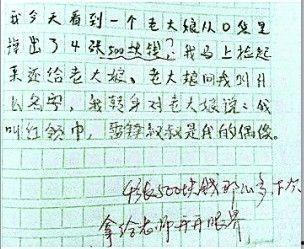 我今天看到一个老大娘从口袋里
掉出了4张500块钱,我马上捡起
来还给老大娘。老大娘问我叫什
么名字,我转身对老大娘说:我
叫红领巾,雷锋叔叔是我的偶像。
4张500块钱那么多下次
拿给老师开开眼界